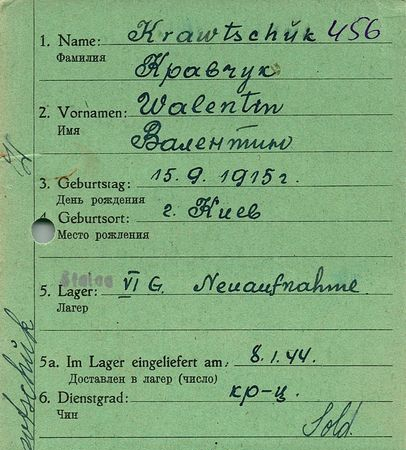 1. Name: Krawtschŭk 456
Фамилия Кравчук
2. Vornamen: Walentin
Имя Валентин
3. Geburtstag: 15.9.1915 г.
День рождения
4. Geburtsort: г. Киев
Место рождения
Stalag
5. Lager: VI G. Neuaufnahme
Лагерь
5a. Im Lager eingeliefert am: 8.1.44.
Доставлен в лагерь (число)
6. Dienstgrad: кр-ц.
Чин Sold.